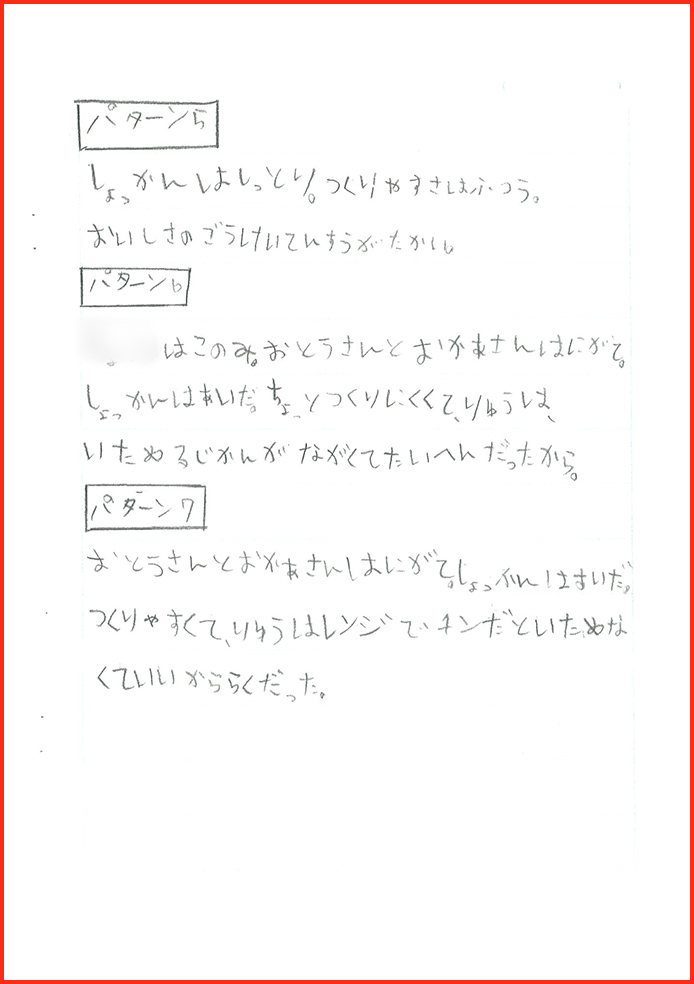 パターン5
しょっかんはしっとり。つくりやすさはふつう。
おいしさのごうけいてんすうがたかい。
パターン6
はこのみ。おとうさんとおかあさんはにがて。
しょっかんはあいだ。ちょっとつくりにくくて、りゅうは、
いためるじかんがながくてたいへんだったから。
パターン7
おとうさんとおかあさんはにがて。しょっかんはあいだ。
つくりやすくて、りゅうはレンジでチンだといためな
くていいかららくだった。